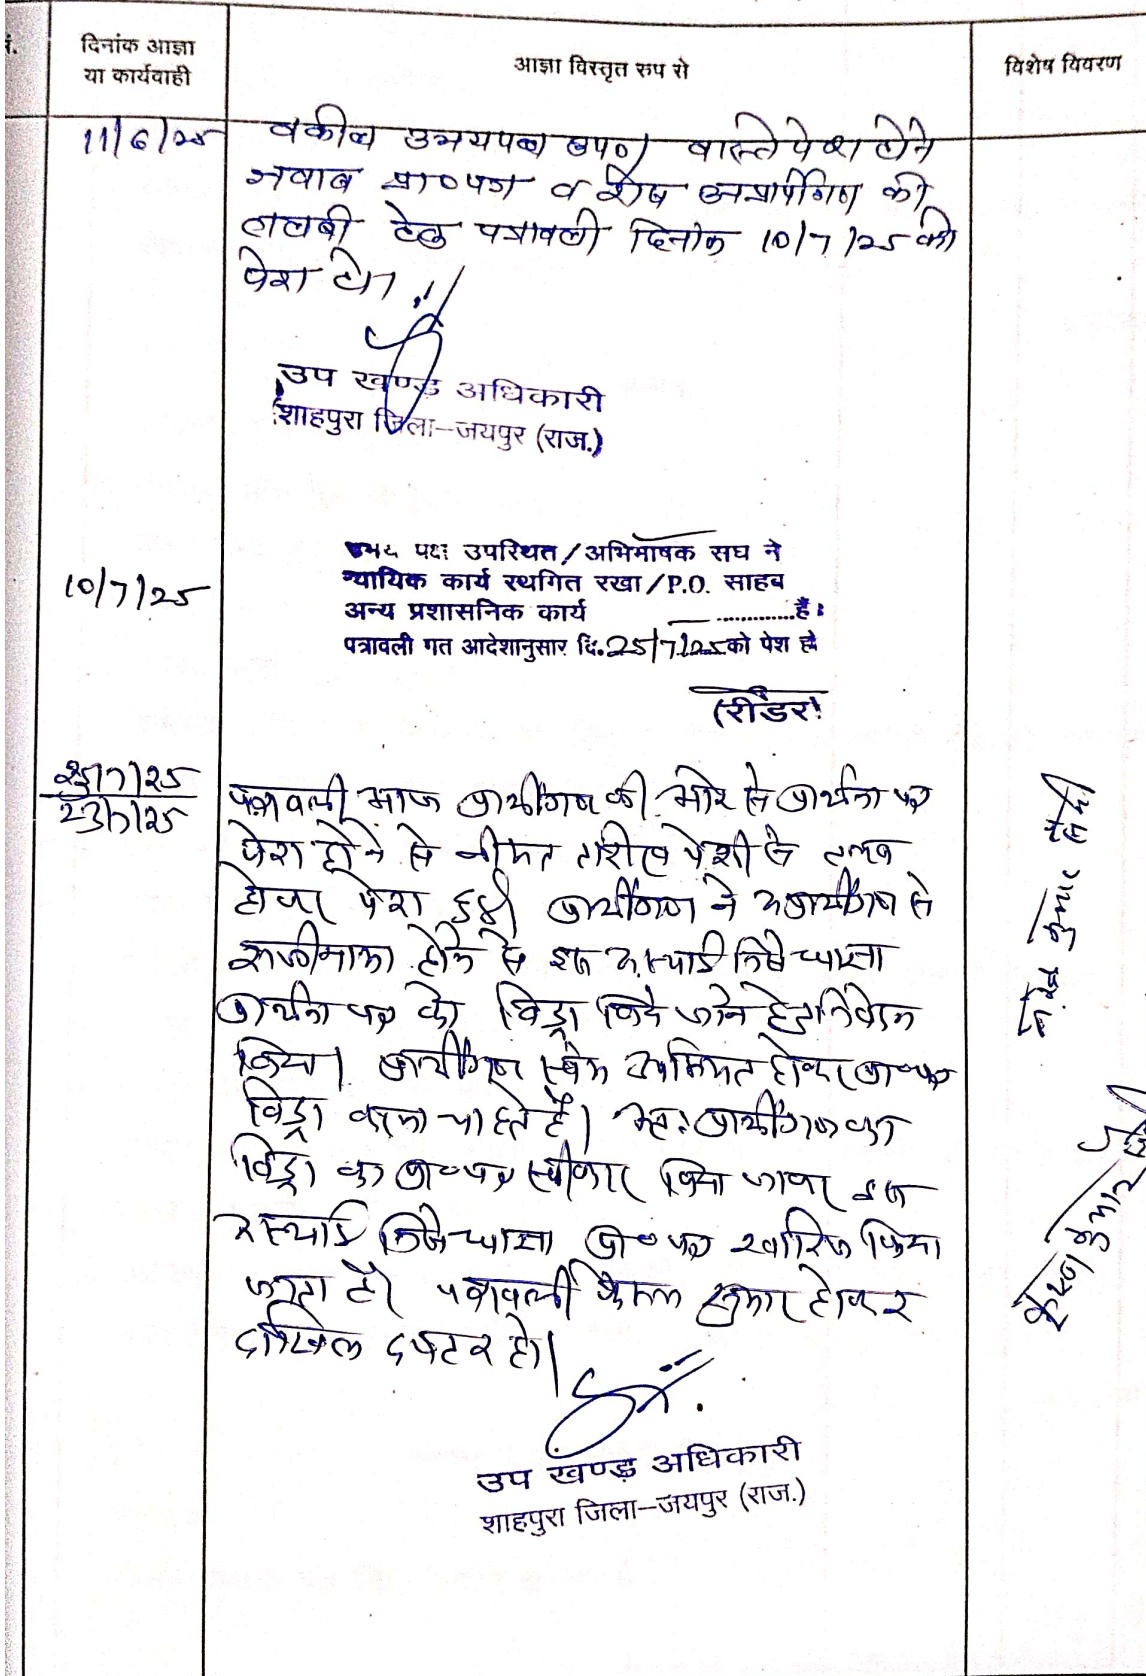 दिनांक आज्ञा
या कार्यवाही
आज्ञा विस्तृत रुप रो
विशेष विवरण
11/6/25
वकील उभयपक्ष उप० वास्ते पेश होने
जवाब प्रा०पत्र व शेष अप्रार्थीगण की
तलबी हेतु पत्रावली दिनांक 10/7/25 को
पेश हो।
उप खण्ड अधिकारी
शाहपुरा जिला–जयपुर (राज.)
10/7/25
उभय पक्ष उपस्थित/अभिभाषक सघ ने
न्यायिक कार्य स्थगित रखा/P.O. साहब
अन्य प्रशासनिक कार्य ............है।
पत्रावली गत आदेशानुसार दि.25/7/25को पेश हो
(रीडर)
25/7/25
23/7/25
पत्रावली आज प्रार्थीगण की ओर से प्रार्थना पत्र
पेश होने से नीयत तारीख पेशी से तलब
होकर पेश हुई। प्रार्थीगण ने अप्रार्थीगण से
राजीनामा होने से इस अस्थाई निषेधाज्ञा
प्रार्थना पत्र को विड्रा किये जाने हेतु निवेदन
किया। प्रार्थीगण स्वंय उपस्थित होकर प्रा०पत्र
विड्रा करना चाहते हैं। अतः प्रार्थीगण का
विड्रा का प्रा०पत्र स्वीकार किया जाकर इस
अस्थाई निषेधाज्ञा प्रा०पत्र खारिज किया
जाता है। पत्रावली फैसल शुमार होकर
दाखिल दफ्टर हो।
उप खण्ड़ अधिकारी
शाहपुरा जिला–जयपुर (राज.)
कुमार
कृष्ण कुमार